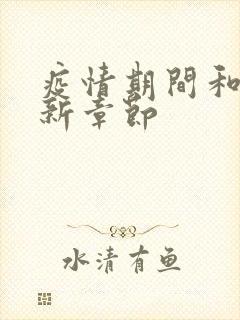 疫情期間和
新章節
水清有鱼